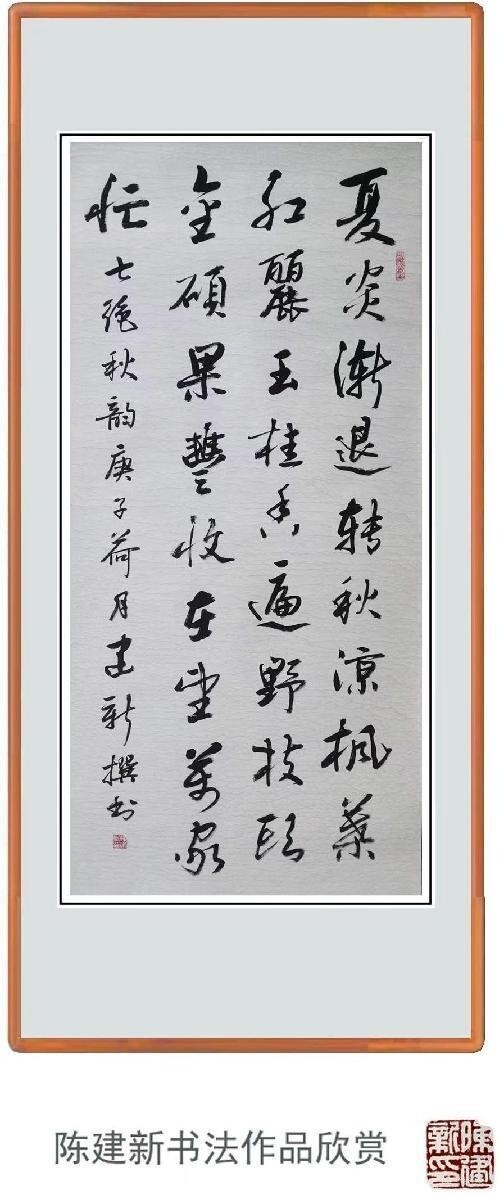 夏炎渐退转秋凉枫葉
红麗玉桂香遍野枝头
金硕果豐收在望萬家
忙
七绝秋韵庚子荷月建新撰书
陈建新书法作品欣赏
陳建新印